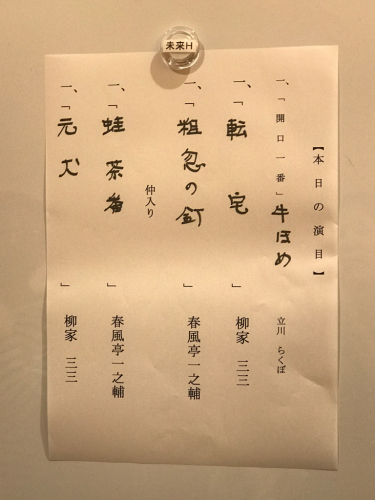 未来H
【本日の演目】
一、「開口一番」牛ほめ 立川 らくぼ
一、「転宅」 柳家 三三
一、「粗忽の釘」 春風亭一之輔
仲入り
一、「蛙茶番」 春風亭一之輔
一、「元犬」 柳家 三三